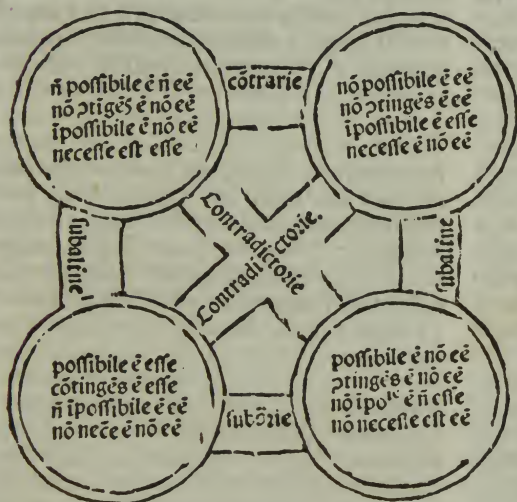 n̄ poſſibile ē n̄ eē
nō ꝯtīgēs ē nō eē
īpoſſibile ē nō eē
neceſſe eſt eſſe
cōtrarie
nō poſſibile ē eē
nō ꝯtingēs ē eē
īpoſſibile ē eſſe
neceſſe ē nō eē
ſubalt̄ne
Contradictorie.
Contradictorie
ſubalt̄ne
poſſibile ē eſſe
cōtingēs ē eſſe
n̄ īpoſſibile ē eē
nō nec̄e ē nō eē
ſubↄ̄rie
poſſibile ē nō eē
ꝯtingēs ē nō eē
nō īpoˡᵉ ē n̄ eſſe
nō neceſſe eſt eē